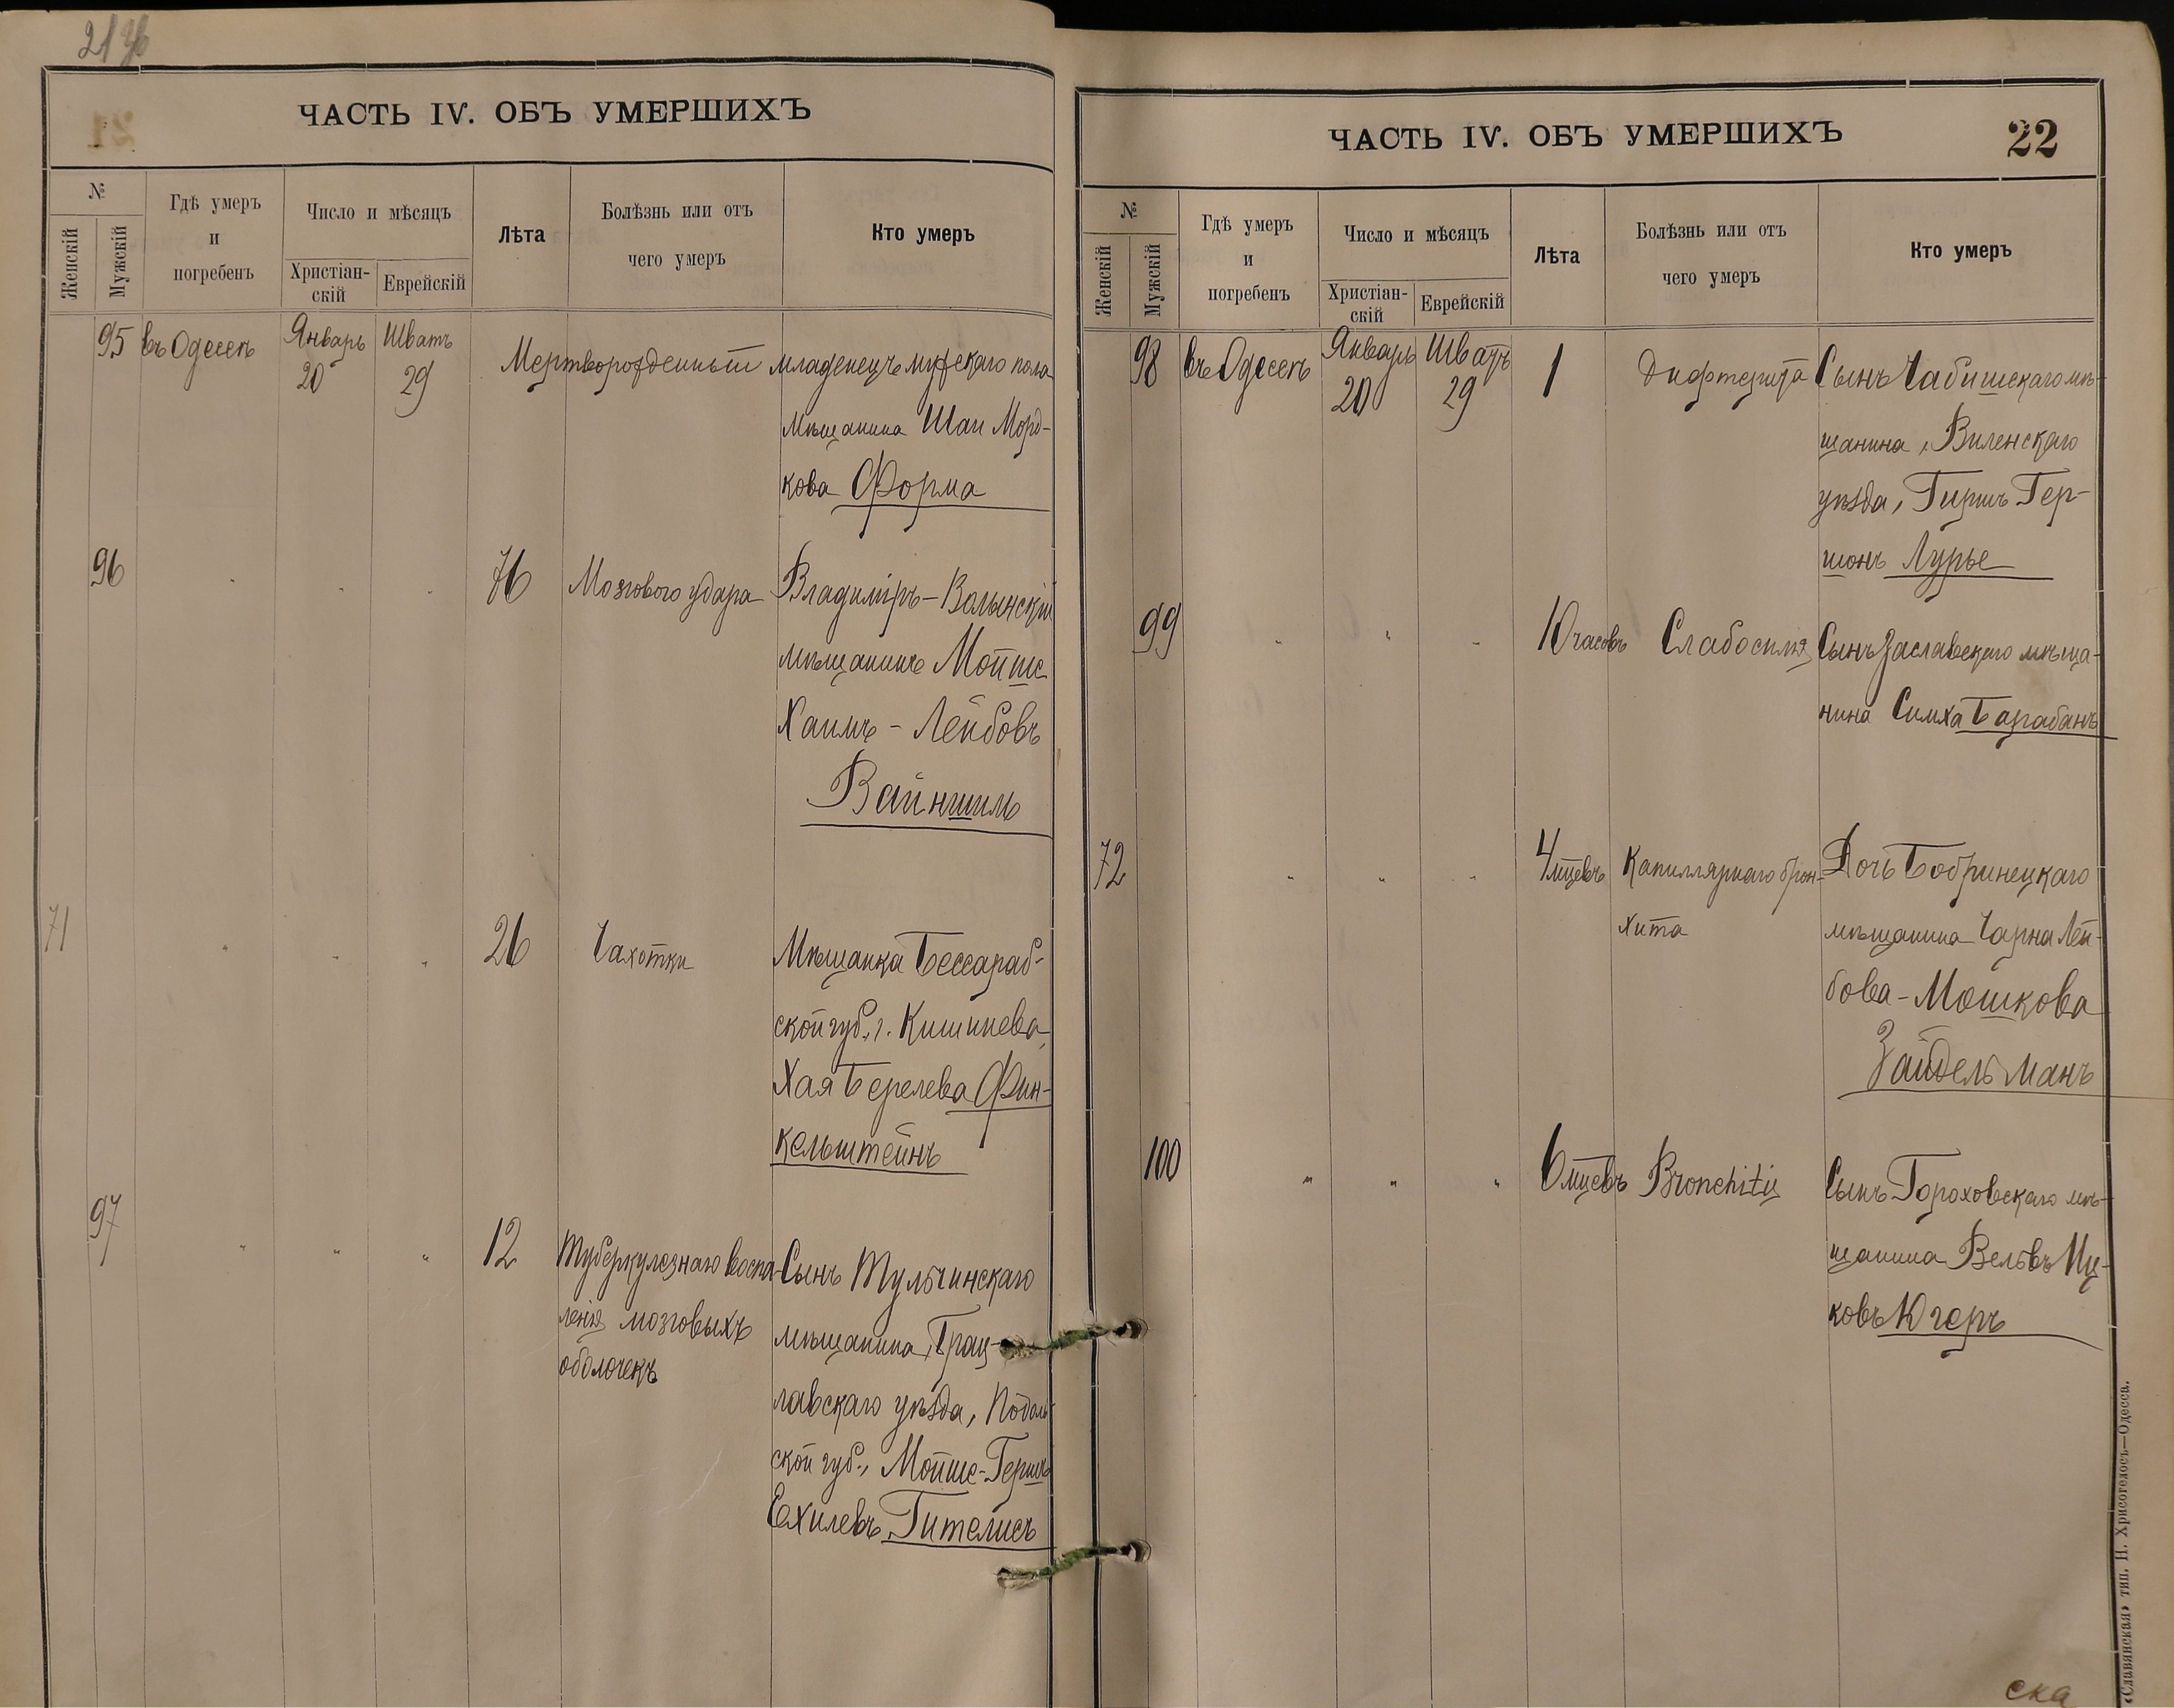 21 об
ЧАСТЬ IV. ОБЪ УМЕРШИХЪ
№
Женскій
Мужскій
Гдѣ умеръ
и
погребенъ
Число и мѣсяцъ
Христіан-
скій
Еврейскій
Лѣта
Болѣзнь или отъ
чего умеръ
Кто умеръ
95 въ Одессѣ Январь 20 Шватъ 29 Мертворожденный младенецъ мужскаго пола
мѣщанина Шаи Морд-
кова Форма
96 " " " 76 Мозгового удара Владиміръ-Волынскій
мѣщанинъ Мойше
Хаимъ - Лейбовъ
Вайншиль
71 " " " 26 Чахотки Мѣщанка Бессараб-
ской губ., г. Кишинева,
Хая Берелева Фин-
кельштейнъ
97 " " " 12 Туберкулезнаго воспа- Сынъ Тульчинскаго
ленія мозговыхъ мѣщанина, Брац-
оболочекъ лавскаго уѣзда, Подоль-
ской губ., Мойше-Гершъ
Ехилевъ Гителисъ
ЧАСТЬ IV. ОБЪ УМЕРШИХЪ
22
№
Женскій
Мужскій
Гдѣ умеръ
и
погребенъ
Число и мѣсяцъ
Христіан-
скій
Еврейскій
Лѣта
Болѣзнь или отъ
чего умеръ
Кто умеръ
98 въ Одессѣ Январь 20 Шватъ 29 1 Дифтерита Сынъ Чабишскаго мѣ-
щанина, Виленскаго
уѣзда, Гиршъ Гер-
шонъ Лурье
99 " " " 10 часовъ Слабосилія Сынъ Заславскаго мѣща-
нина Симха Барабанъ
72 " " " 4 мцевъ Капиллярнаго брон- Дочь Бобринецкаго
хита мѣщанина Чарна Лей-
бова-Мошкова
Зайдельманъ
100 " " " 6 мцевъ Bronchitis Сынъ Гороховскаго мѣ-
щанина Вельвъ Иц-
ковъ Югеръ
«Славянская» тип. Н. Хрисогелосъ—Одесса.
ска